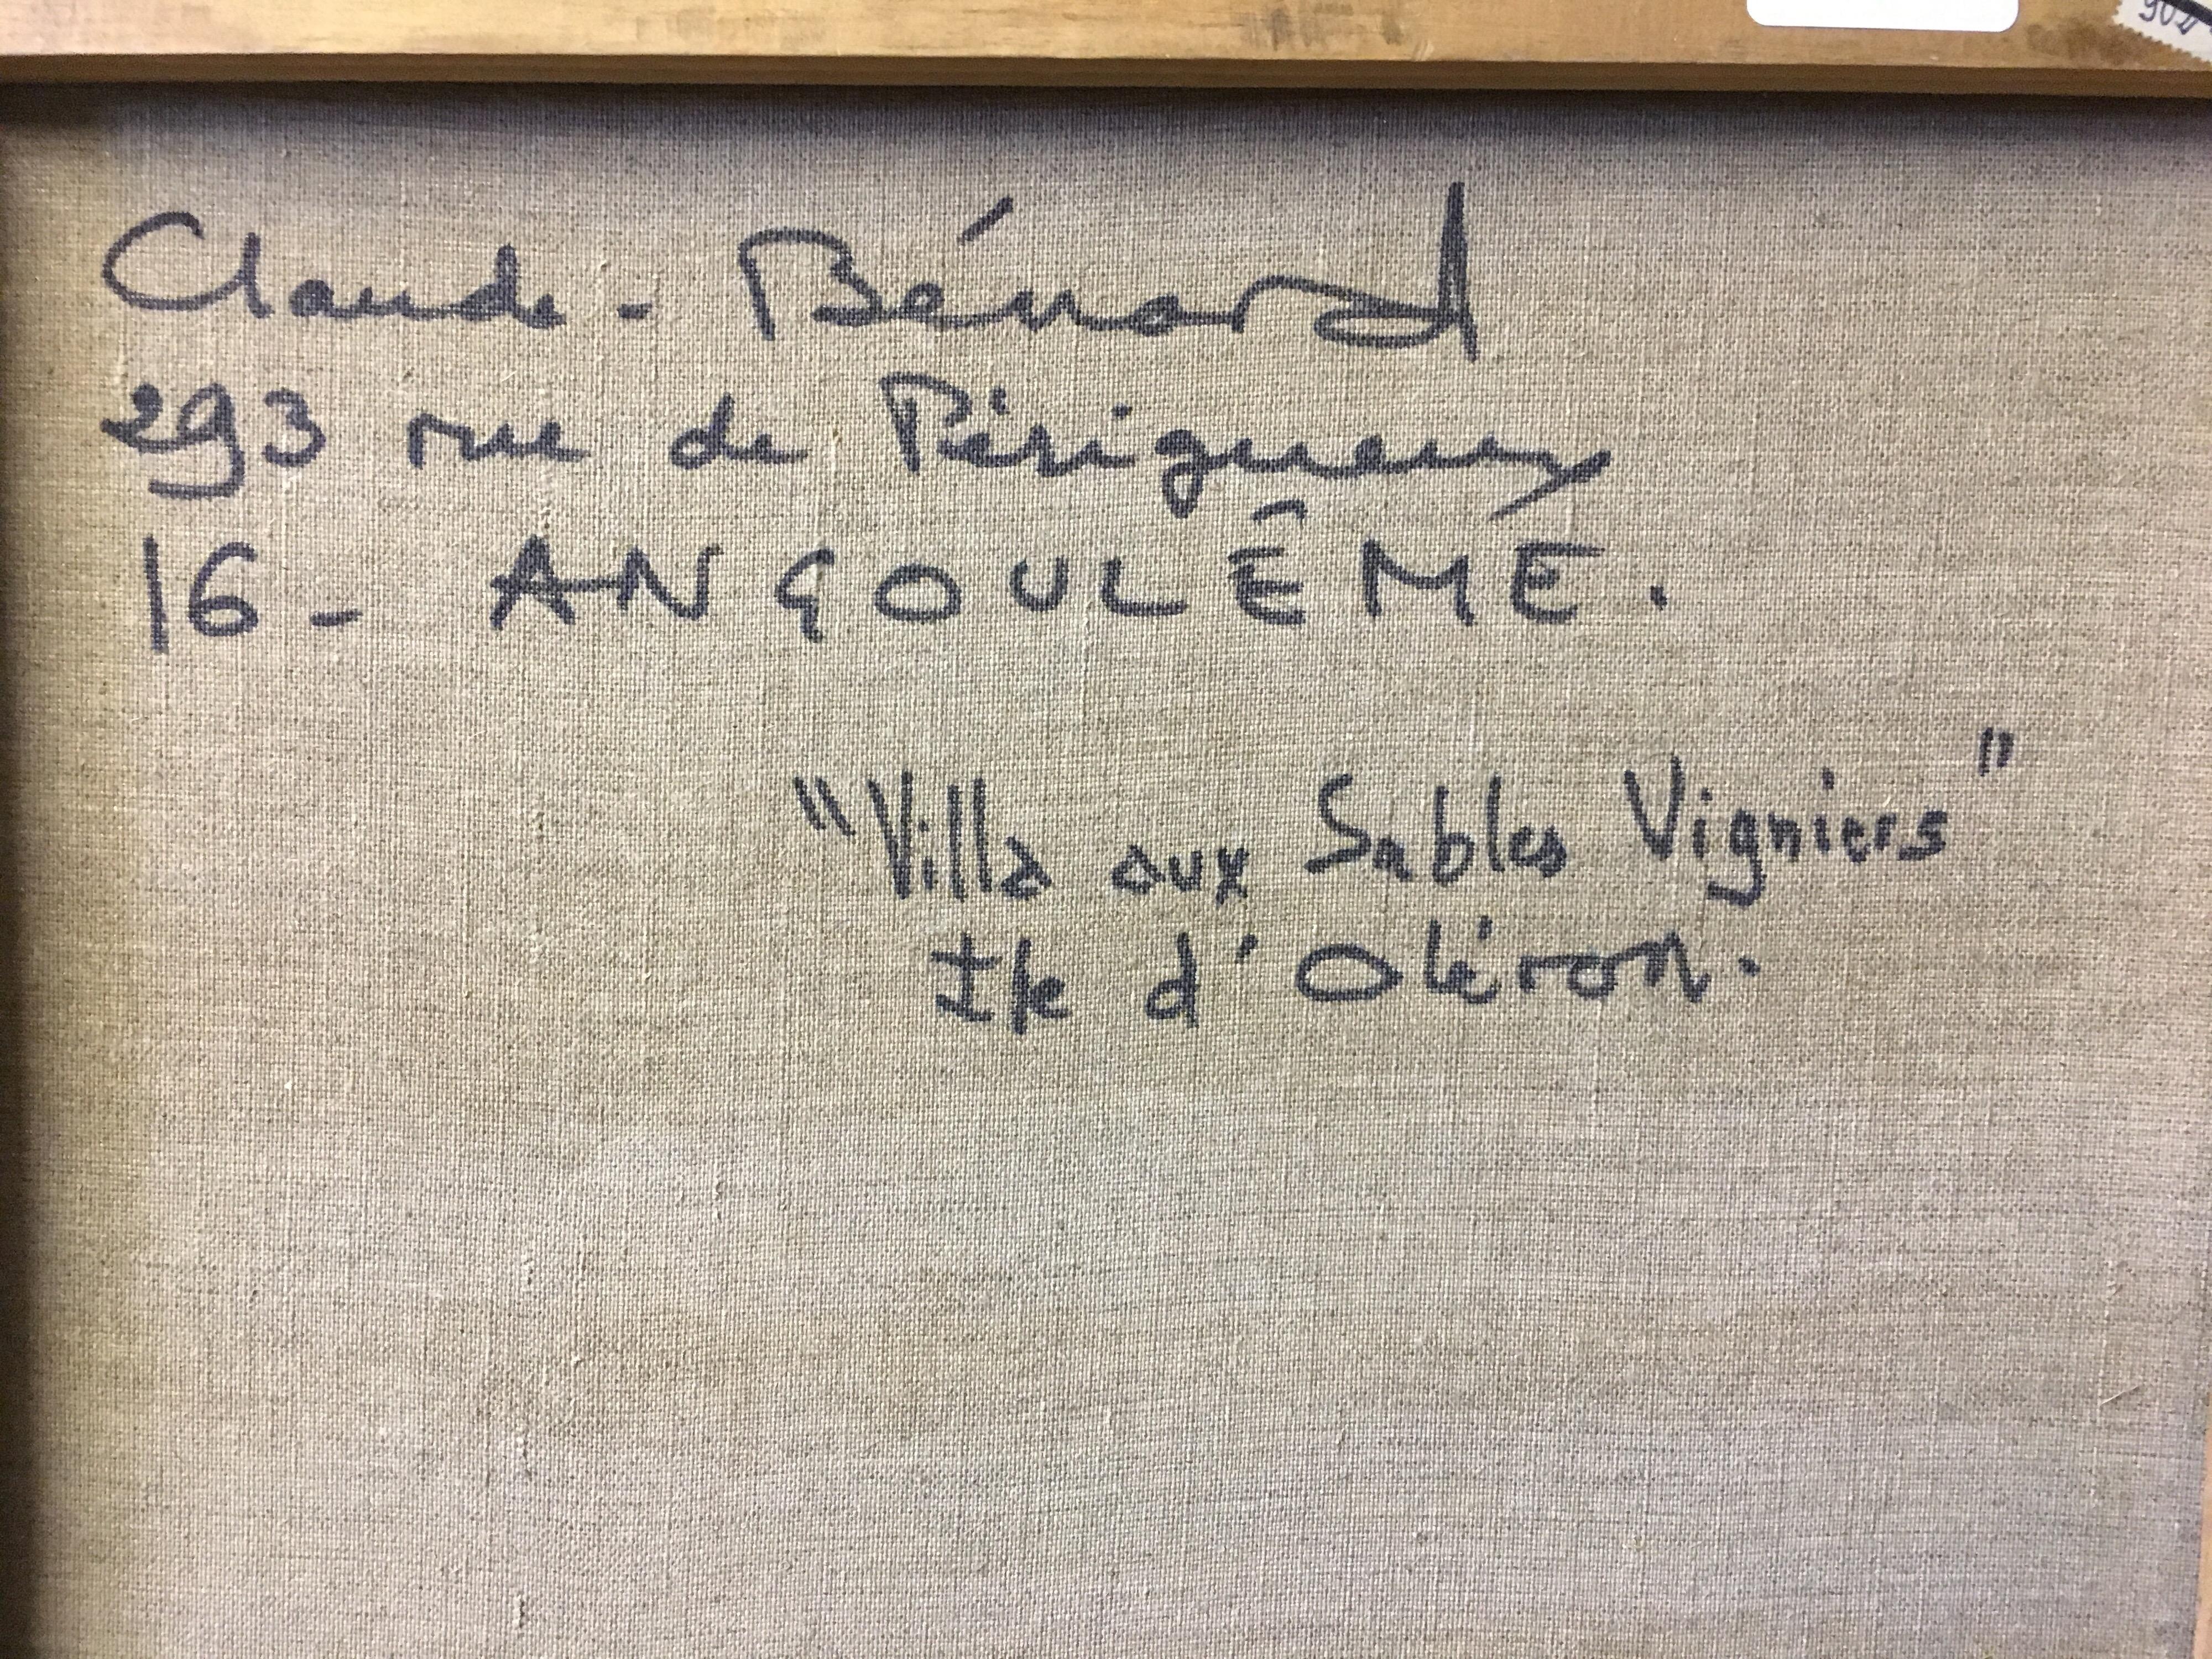 Claude-Bénard
293 rue de Périgueux
16- ANGOULÊME.
"Villa aux Sables Vigniers"
Ile d'Oléron.